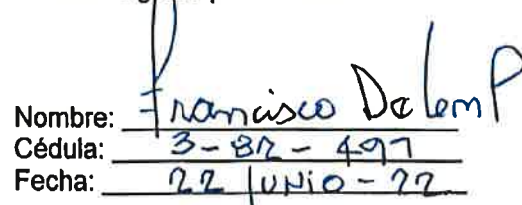 Nombre: Francisco De Lem P
Cédula: 3-82-497
Fecha: 22 JUNIO-22